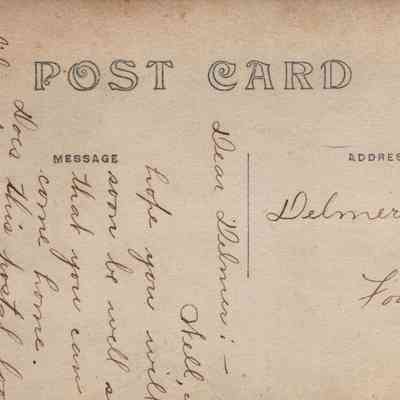 POST CARD
MESSAGE
ADDRES
Dear Delmer:-
Well,
hope you will
soon be well s
that you can
come home.
Does this postal
Delmer